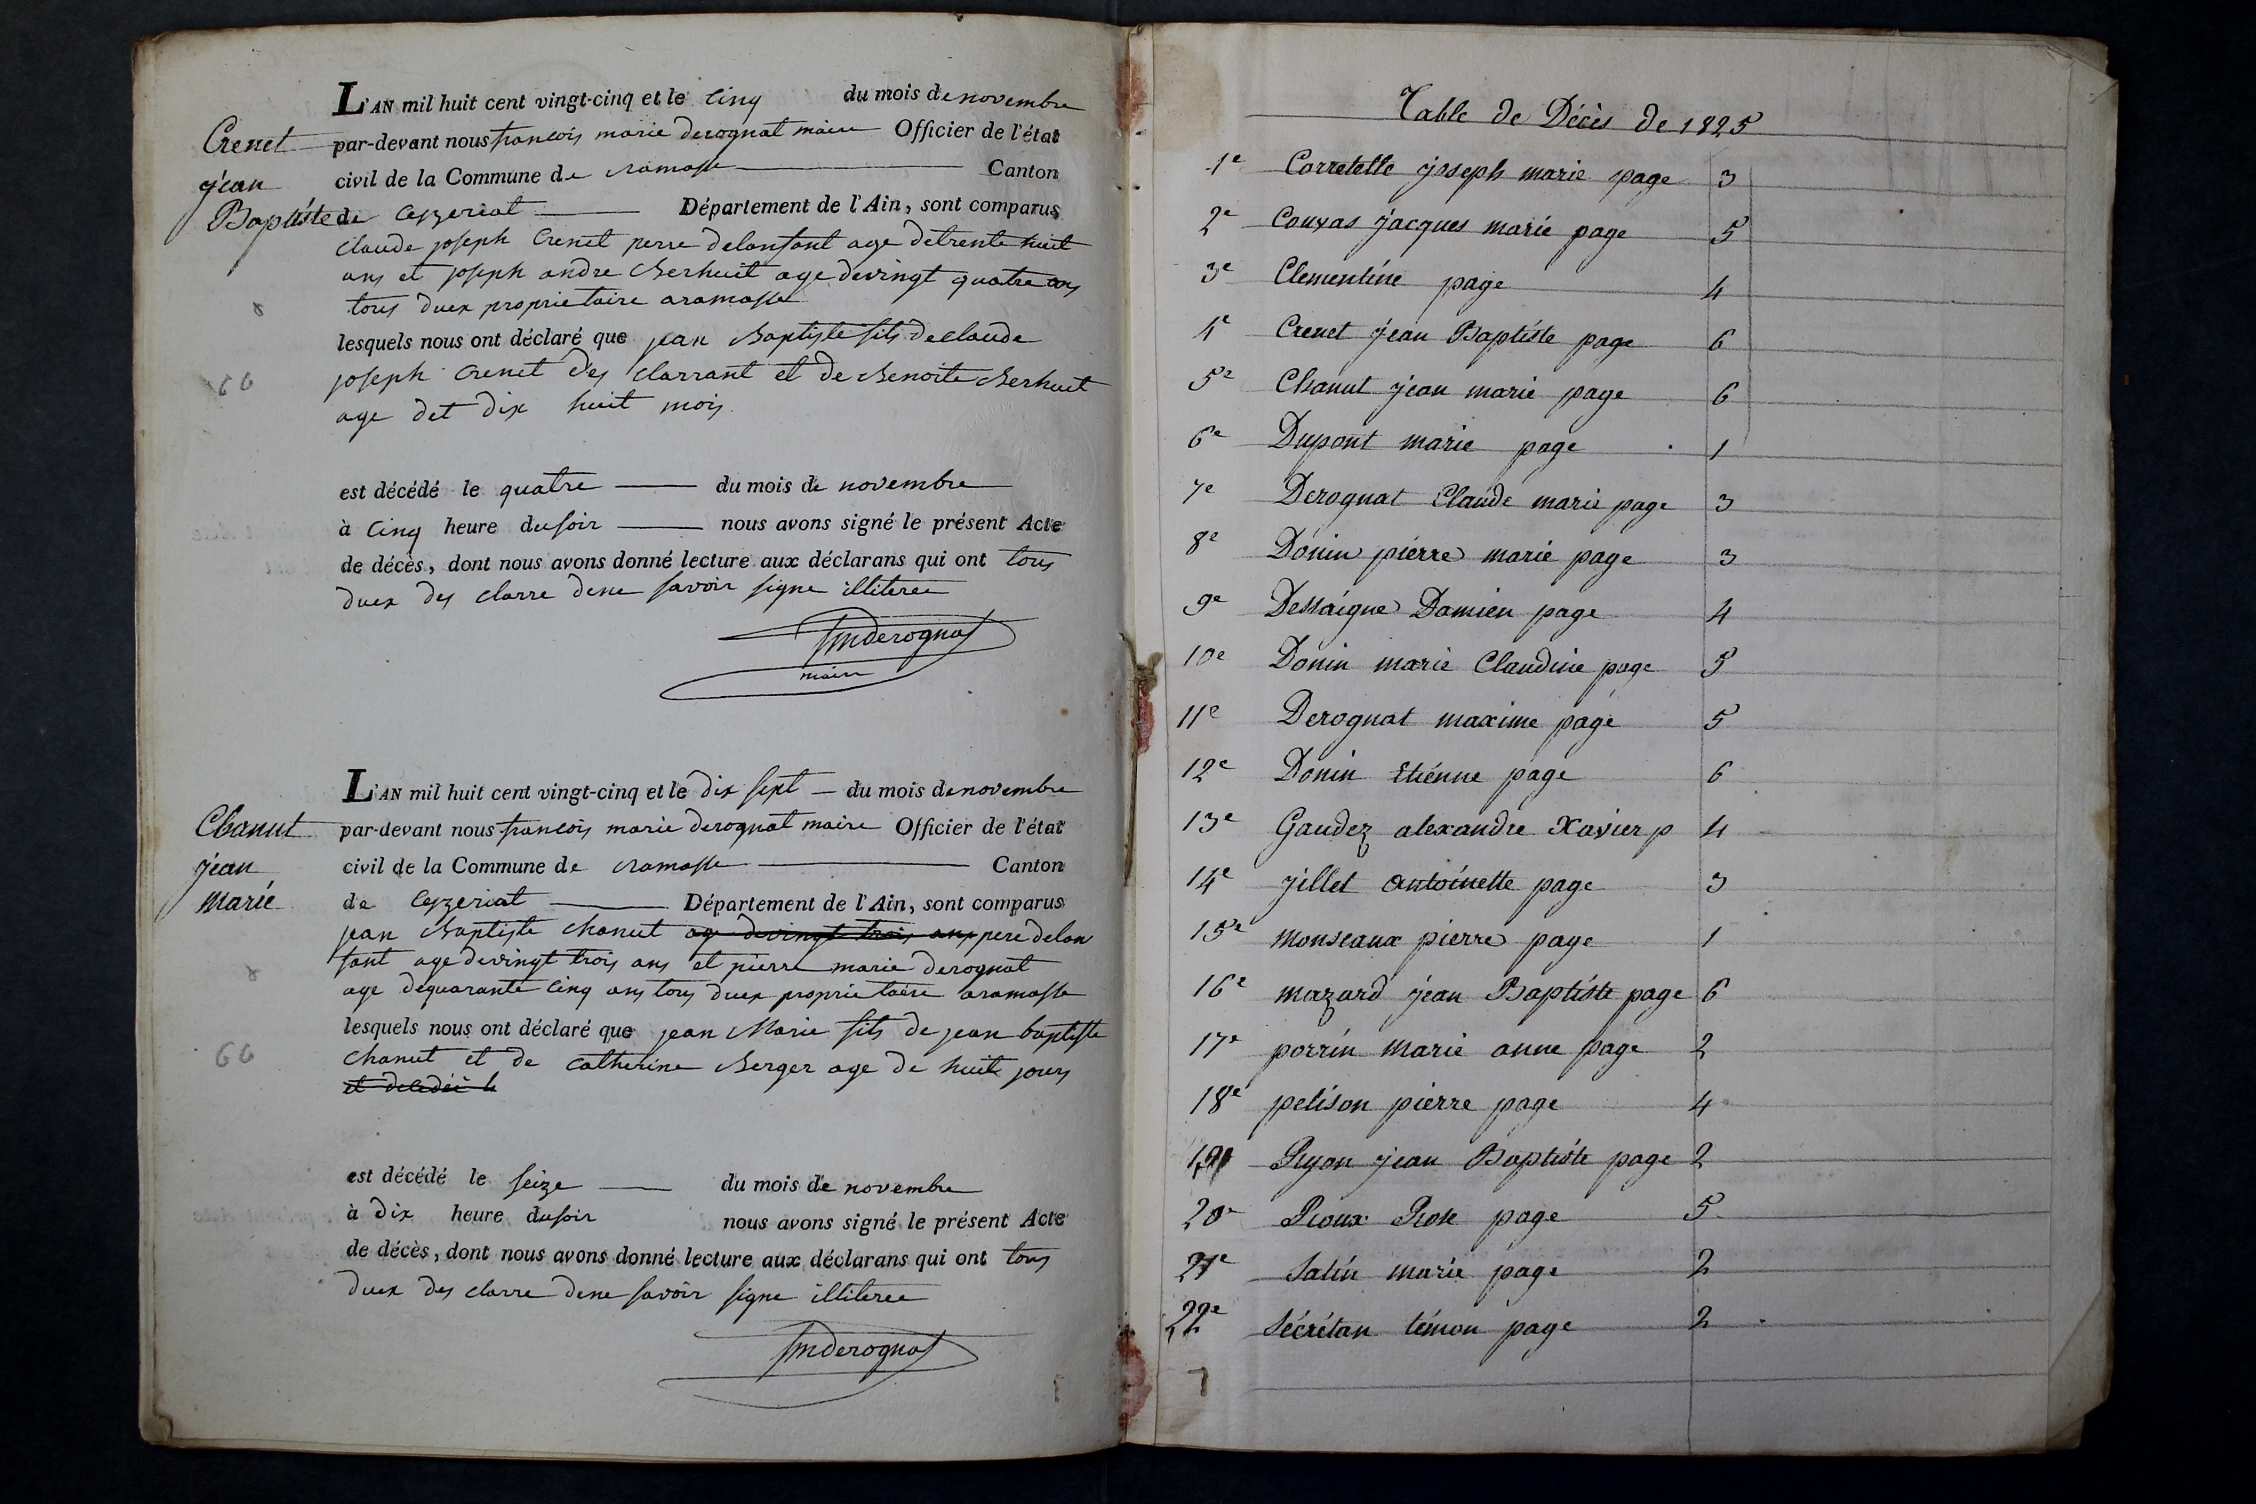 Crenet
jean
Baptiste
L'AN mil huit cent vingt-cinq et le cinq du mois de novembre
par-devant nous francois marie derognat maire Officier de l'état
civil de la Commune de ramasse Canton
de ceyzeriat Département de l'Ain, sont comparus
claude joseph Crenet perre delanfant age detrente huit
ans et joseph andre Berhuit age devingt quatre ans
tous duex proprietaire aramasse
lesquels nous ont déclaré que jean Baptiste fils declaude
joseph crenet des clarrant et de Benoite Berhuet
age det dix huit mois
est décédé le quatre du mois de novembre
à cinq heure dusoir nous avons signé le présent Acte
de décès, dont nous avons donné lecture aux déclarans qui ont tous
duex des clarre dene savoir signe illiteree
fmderognat
maire
Chanut
jean
marie
L'AN mil huit cent vingt-cinq et le dix sept du mois de novembre
par-devant nous francois marie derognat maire Officier de l'état
civil de la Commune de ramasse Canton
de ceyzeriat Département de l'Ain, sont comparus
jean Baptiste chanut age devingt trois ans pere delan
fant age devingt trois ans et pierre marie derognat
age dequarante cinq ans tous duex proprietaire aramasse
lesquels nous ont déclaré que jean Marie fils de jean baptiste
chanut et de catherine Berger age de huit jours
est décédé le seize du mois de novembre
à dix heure dusoir nous avons signé le présent Acte
de décès, dont nous avons donné lecture aux déclarans qui ont tous
duex des clarre dene savoir signe illiteree
fmderognat
Table de Décès de 1825
1e Corretelle joseph marie page 3
2e Couvas jacques marie page 5
3e Clementine page 4
4e Crenet jean Baptiste page 6
5e Chanut jean marie page 6
6e Dupont marie page 1
7e Derognat Claude marie page 3
8e Donin pierre marie page 3
9e Dessaigne Damien page 4
10e Donin marie Claudine page 5
11e Derognat maxime page 5
12e Donin Etiénne page 6
13e Gaudez alexandre Xavier p 4
14e jillet antoinette page 3
15e monseaux pierre page 1
16e mazard jean Baptiste page 6
17e porrin marie anne page 2
18e pelison pierre page 4
19 Ryon jean Baptiste page 2
20e Rioux Rose page 5
21e Salin marie page 2
22e Sécrétan témon page 2